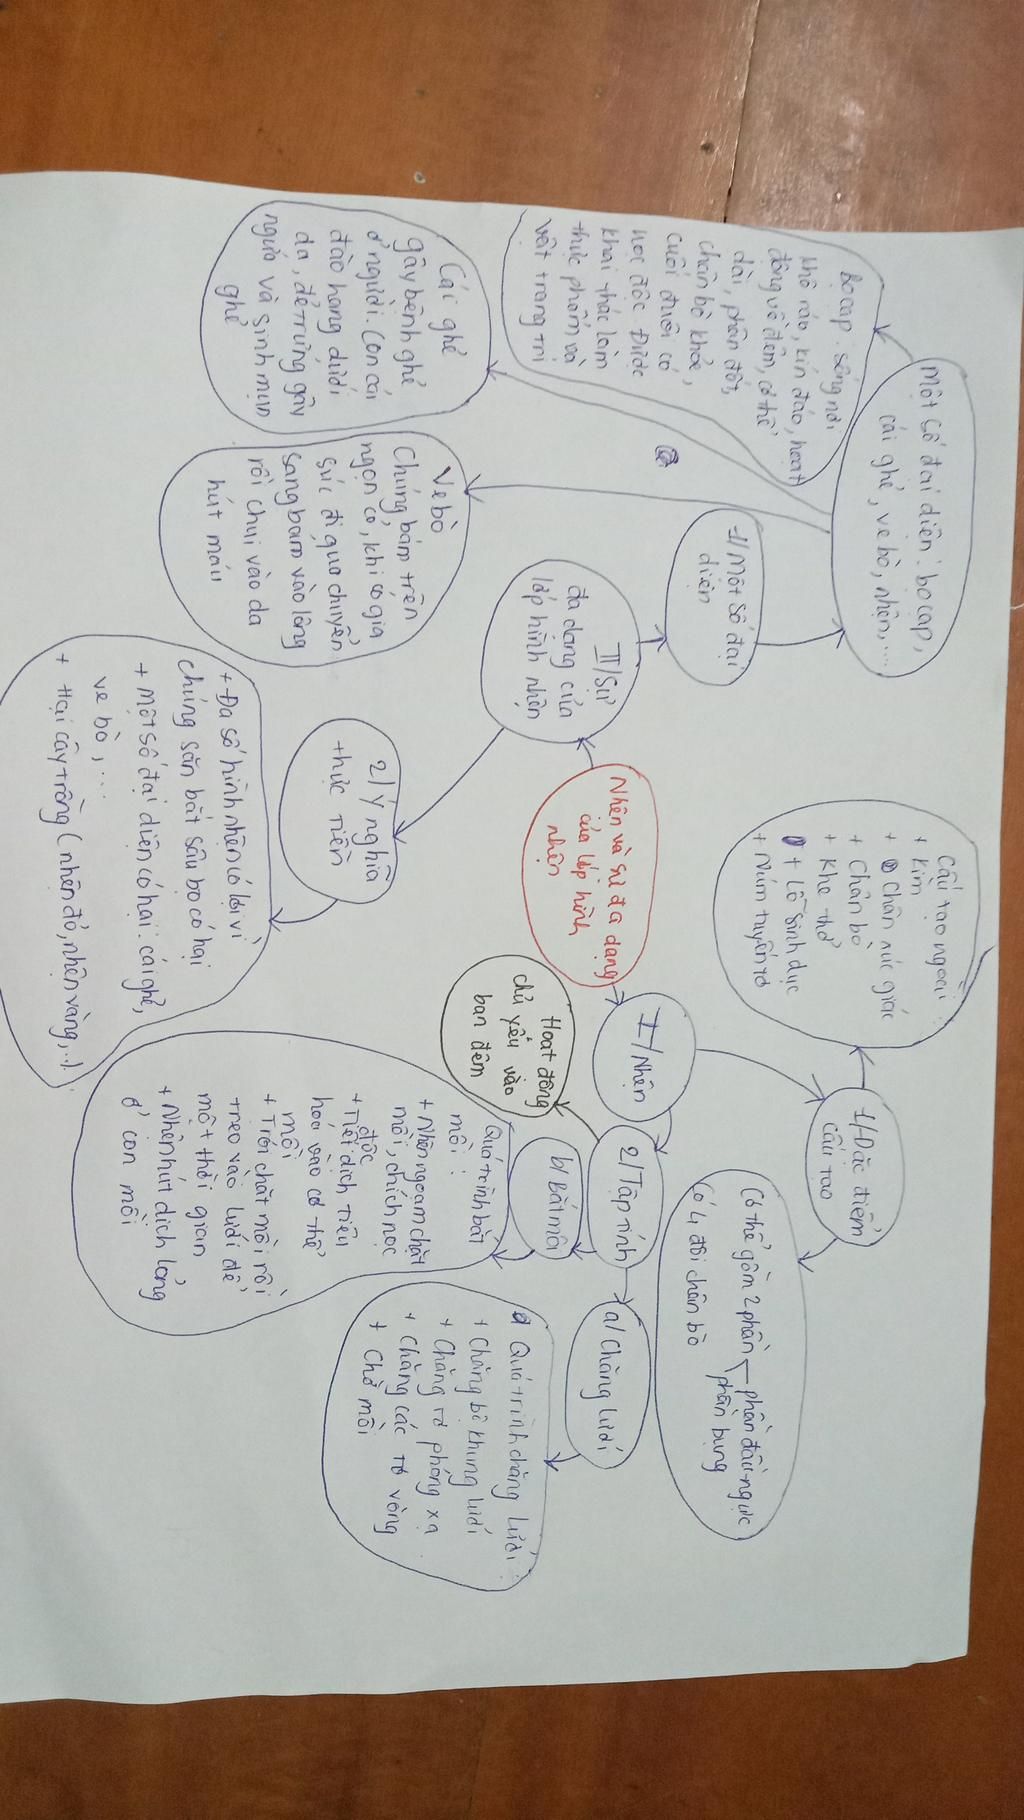 Nhện và sự đa dạng
của lớp hình
nhện
I/Nhện
1/Đặc điểm
cấu tạo
Cấu tạo ngoài:
+ Kìm
+ Chân xúc giác
+ Chân bò
+ Khe thở
+ Lỗ sinh dục
+ Núm tuyến tơ
Có thể gồm 2 phần
phần đầu-ngực
phần bụng
Có 4 đôi chân bò
2/Tập tính
a/Chăng lưới
Quá trình chăng lưới:
+ Chăng bộ khung lưới
+ Chăng tơ phóng xạ
+ Chăng các tơ vòng
+ Chờ mồi
b/Bắt mồi
Quá trình bắt
mồi:
+ Nhện ngoạm chặt
mồi, chích nọc
độc
+ Tiết dịch tiêu
hoá vào cơ thể
mồi
+ Trói chặt mồi rồi
treo vào lưới để
một thời gian
+ Nhện hút dịch lỏng
ở con mồi
Hoạt động
chủ yếu vào
ban đêm
II/Sự
đa dạng của
lớp hình nhện
1/Một số đại
diện
Một số đại diện: bọ cạp,
cái ghẻ, ve bò, nhện,...
Bọ cạp: sống nơi
khô ráo, kín đáo, hoạt
động về đêm, cơ thể
dài, phân đốt,
chân bò khỏe,
cuối đuôi có
nọc độc. Được
khai thác làm
thực phẩm và
vật trang trí
Cái ghẻ
gây bệnh ghẻ
ở người. Con cái
đào hang dưới
da, đẻ trứng gây
ngứa và sinh mụn
ghẻ
Ve bò
Chúng bám trên
ngọn cỏ, khi có gia
súc đi qua chuyển
sang bám vào lông
rồi chui vào da
hút máu
2/Ý nghĩa
thực tiễn
+ Đa số hình nhện có lợi vì
chúng săn bắt sâu bọ có hại
+ Một số đại diện có hại: cái ghẻ,
ve bò,...
+ Hại cây trồng (nhện đỏ, nhện vàng,...).